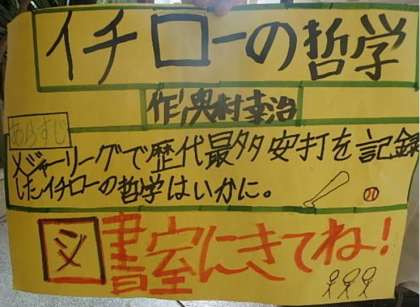 イチローの哲学
作/奥村幸治
あらすじ
メジャーリーグで歴代最多安打を記録
したイチローの哲学はいかに。
図書室にきてね!